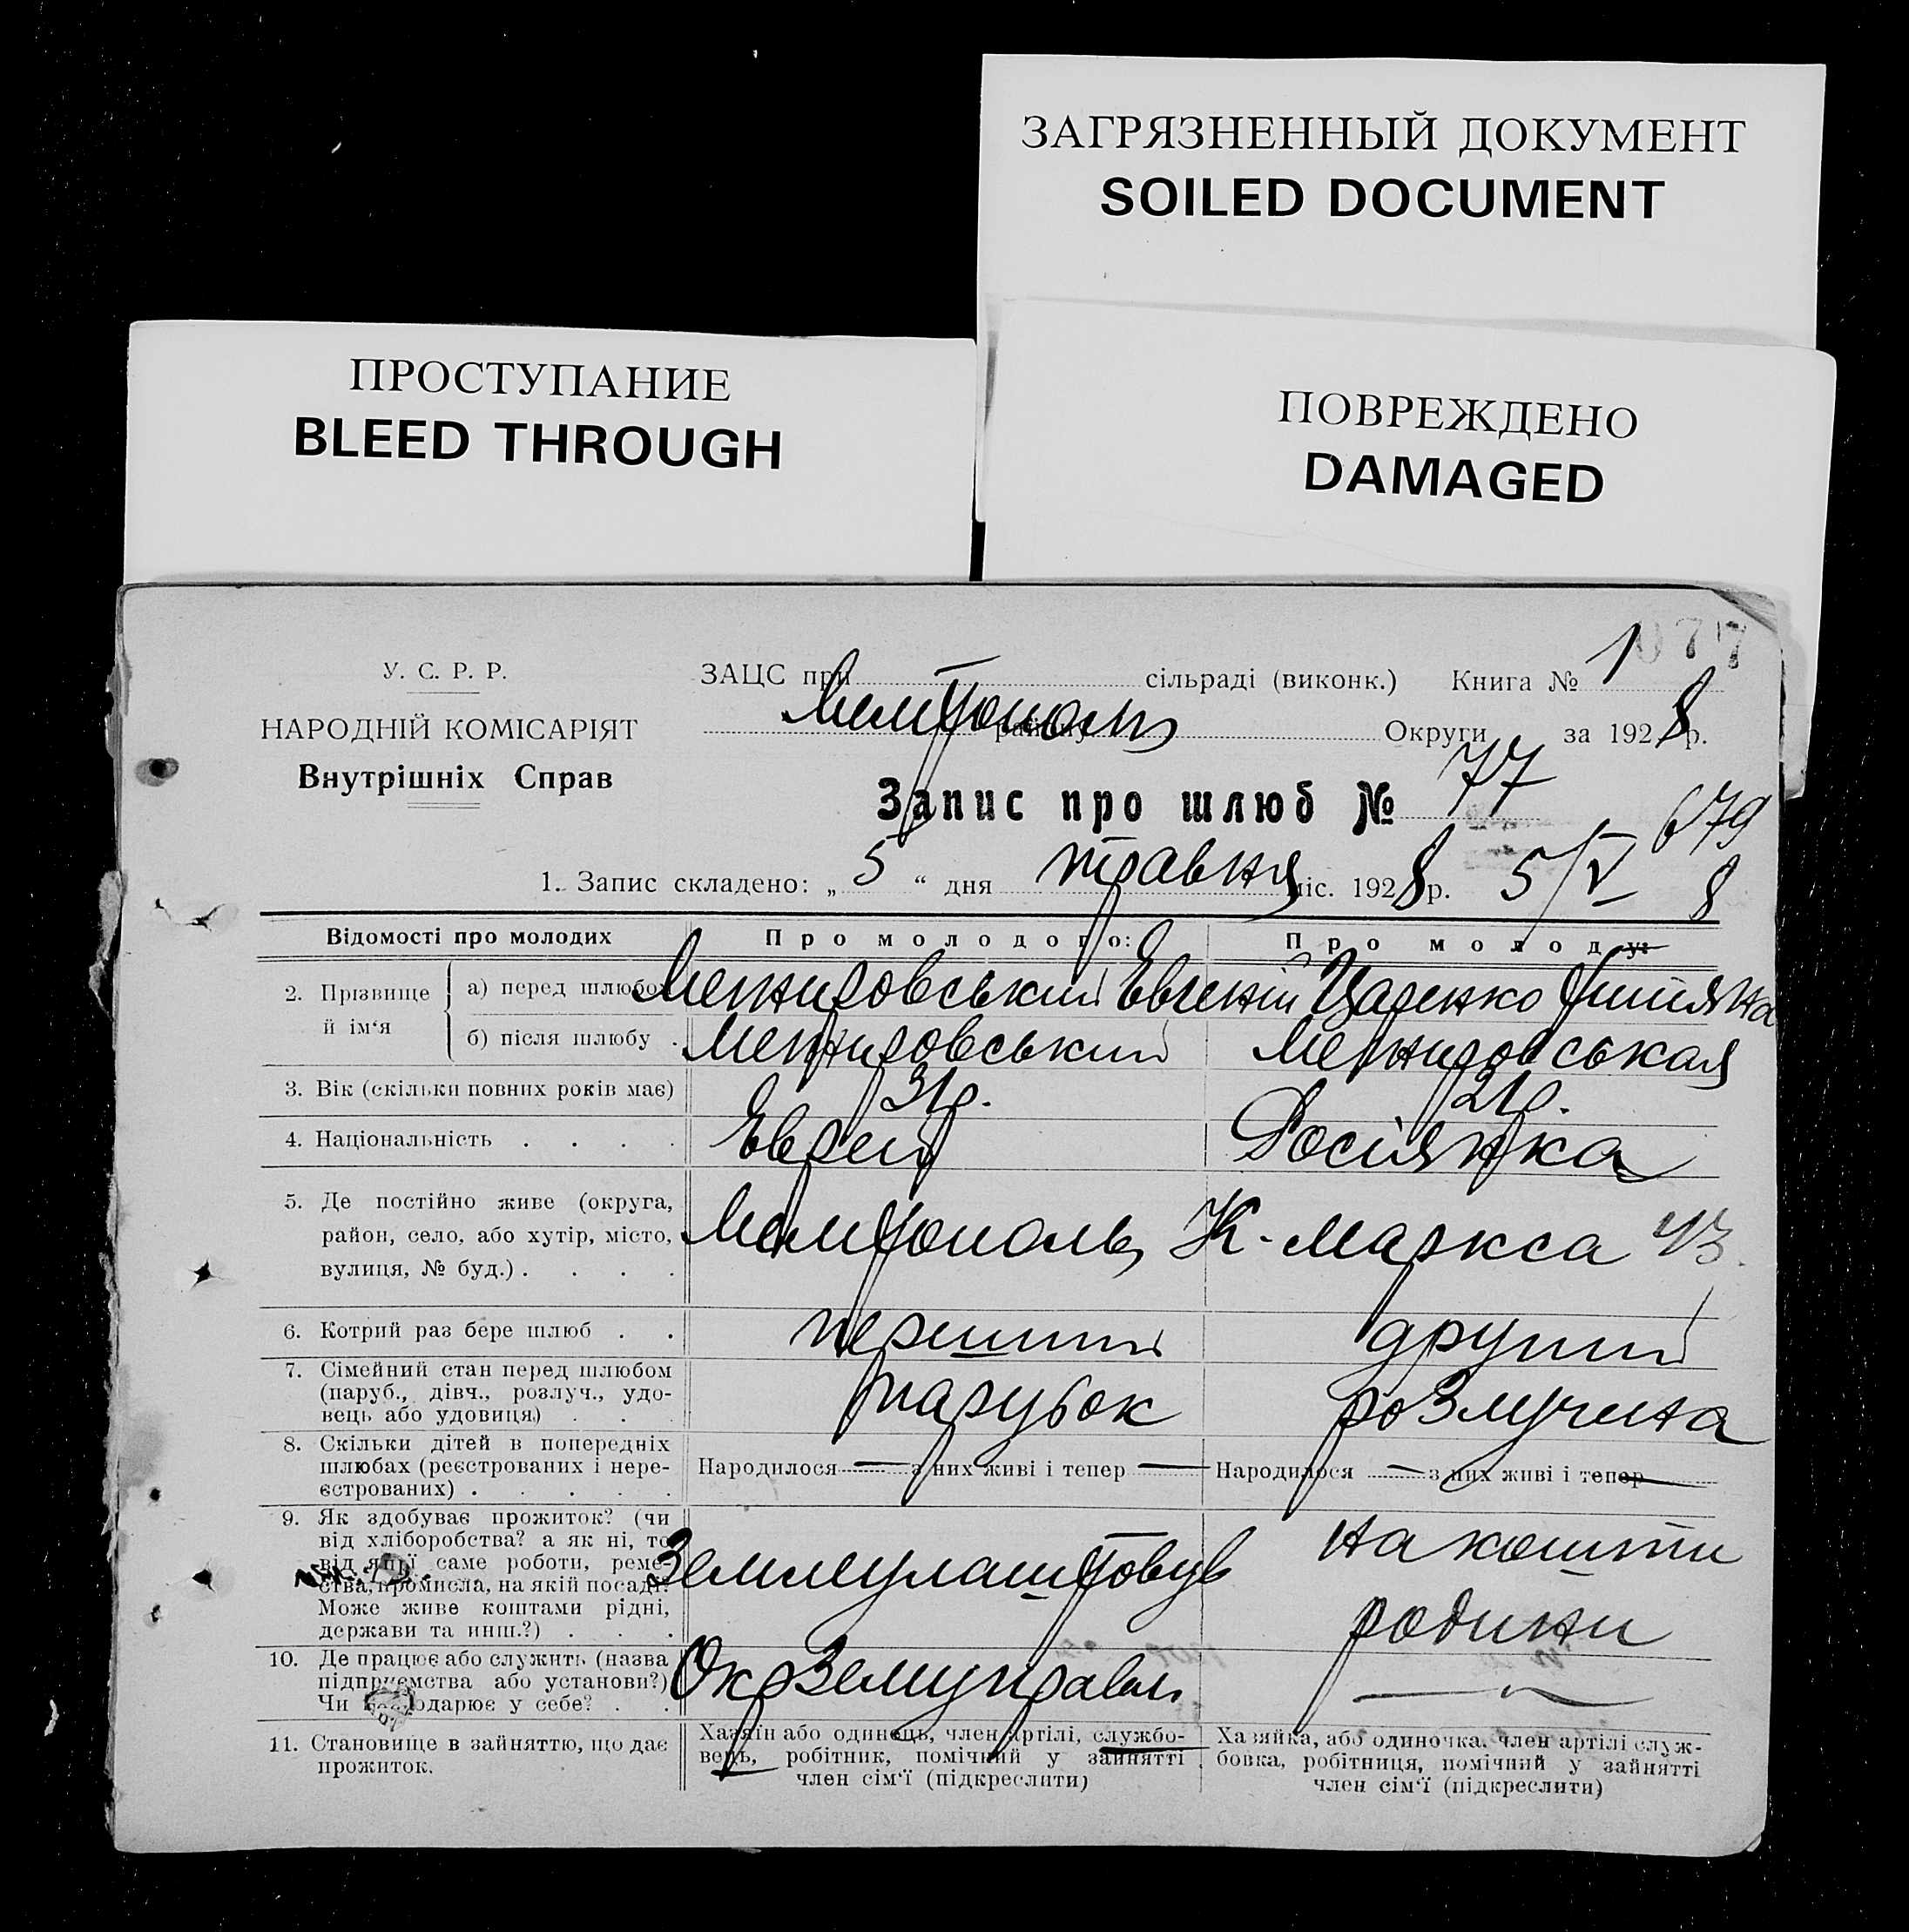 ЗАГРЯЗНЕННЫЙ ДОКУМЕНТ
SOILED DOCUMENT
ПРОСТУПАНИЕ
BLEED THROUGH
ПОВРЕЖДЕНО
DAMAGED
077
У. С. Р. Р.
НАРОДНІЙ КОМІСАРІЯТ
Внутрішніх Справ
ЗАЦС при сільраді (виконк.) Книга № 1
Мелітополь району Округи за 1928 р.
Запис про шлюб № 77
679
1. Запис складено: „ 5 “ дня травня міс. 1928 р. 5/V 8
Відомості про молодих
Про молодого:
Про молоду:
2. Прізвище й ім‘я
а) перед шлюбом
Межировський Евгеній
Царенко
б) після шлюбу .
Межировський
Межировськая
3. Вік (скільки повних років має)
31 р.
21 р.
4. Національність . . . .
Еврей
Росіянка
5. Де постійно живе (округа,
район, село, або хутір, місто,
вулиця, № буд.) . . . .
Мелітополь, К. Маркса 43
6. Котрий раз бере шлюб . .
перший
другий
7. Сімейний стан перед шлюбом
(паруб., дівч., розлуч., удо-
вець або удовиця) . . .
парубок
розлучена
8. Скільки дітей в попередніх
шлюбах (реєстрованих і нере-
єстрованих) . . . . .
Народилося — з них живі і тепер —
Народилося — з них живі і тепер —
9. Як здобуває прожиток? (чи
від хліборобства? а як ні, то
від якої саме роботи, реме-
ства, промисла, на якій посаді?
Може живе коштами рідні,
держави та инш.?) . . .
Землеулаштовув
на кошти
родини
10. Де працює або служить (назва
підприємства або установи?)
Чи господарює у себе? . .
Окрземуправл.
—
11. Становище в зайняттю, що дає
прожиток.
Хазяін або одинець, член артілі, службо-
вець, робітник, помічний у зайнятті
член сім‘ї (підкреслити)
Хазяйка, або одиночка, член артілі служ-
бовка, робітниця, помічний у зайнятті
член сім‘ї (підкреслити)